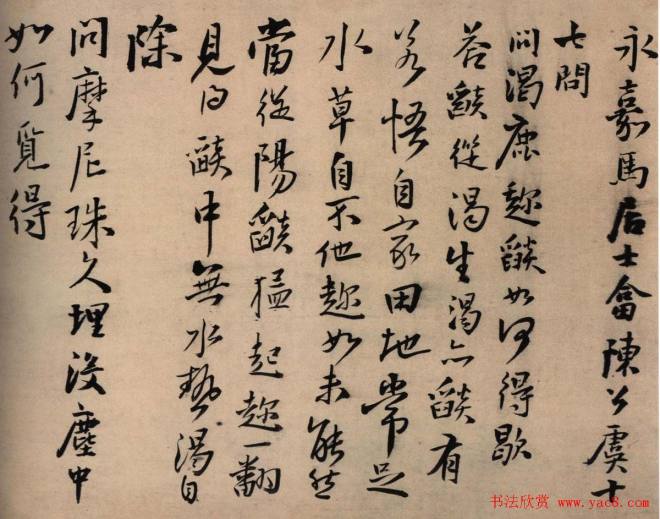 永嘉馬居士畣陳公虞十
七問
問渴鹿趂燄如何得歇
荅燄從渴生渴亦燄有
若悟自家田地常足
水草自不他趂如未能然
當從陽燄猛起趂一翻
見得燄中無水熱渴自
除
問摩尼珠久埋沒塵中
如何覓得
书法欣赏 www.yac8.com